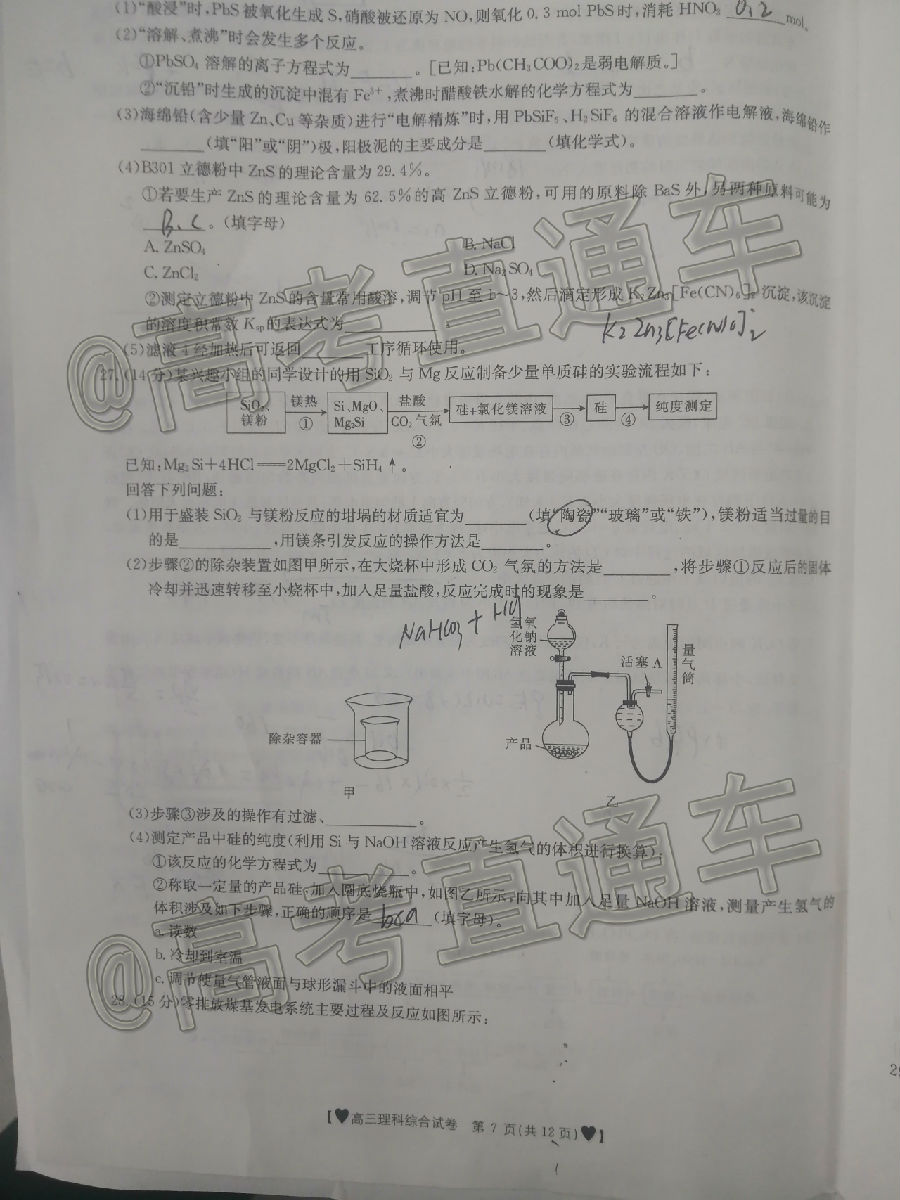 (1)“酸浸”时,PbS被氧化生成S,硝酸被还原为NO,则氧化0.3 mol PbS时,消耗HNO₃ 0.2 mol。
(2)“溶解、煮沸”时会发生多个反应。
①PbSO₄溶解的离子方程式为________。[已知:Pb(CH₃COO)₂是弱电解质。]
②“沉铅”时生成的沉淀中混有Fe³⁺,煮沸时醋酸铁水解的化学方程式为________。
(3)海绵铅(含少量Zn、Cu等杂质)进行“电解精炼”时,用PbSiF₆、H₂SiF₆的混合溶液作电解液,海绵铅作
________(填“阳”或“阴”)极,阳极泥的主要成分是________(填化学式)。
(4)B301立德粉中ZnS的理论含量为29.4%。
①若要生产ZnS的理论含量为62.5%的高ZnS立德粉,可用的原料除BaS外,另两种原料可能为
B、C。(填字母)
A. ZnSO₄ B. NaCl
C. ZnCl₂ D. Na₂SO₄
②测定立德粉中ZnS的含量常用酸溶,调节pH至 ~3,然后滴定形成K₂Zn₃[Fe(CN)₆]₂沉淀,该沉淀
的溶度积常数Kₛₚ的表达式为________。
K₂Zn₃[Fe(CN)₆]₂
(5)滤液4经加热后可返回________工序循环使用。
27.(14分)某兴趣小组的同学设计的用SiO₂与Mg反应制备少量单质硅的实验流程如下:
SiO₂、镁粉 镁热 ① Si、MgO、Mg₂Si 盐酸 CO₂气氛 ② 硅+氯化镁溶液 ③ 硅 ④ 纯度测定
已知:Mg₂Si+4HCl══2MgCl₂+SiH₄↑。
回答下列问题:
(1)用于盛装SiO₂与镁粉反应的坩埚的材质适宜为________(填“陶瓷”“玻璃”或“铁”),镁粉适当过量的目
的是________,用镁条引发反应的操作方法是________。
(2)步骤②的除杂装置如图甲所示,在大烧杯中形成CO₂气氛的方法是________,将步骤①反应后的固体
冷却并迅速转移至小烧杯中,加入足量盐酸,反应完成时的现象是________。
NaHCO₃+HCl
氢氧
化钠
溶液
活塞A
量气筒
除杂容器
产品
甲
乙
(3)步骤③涉及的操作有过滤、________。
(4)测定产品中硅的纯度(利用Si与NaOH溶液反应产生氢气的体积进行换算)。
①该反应的化学方程式为________。
②称取一定量的产品硅,加入圆底烧瓶中,如图乙所示,向其中加入足量NaOH溶液,测量产生氢气的
体积涉及如下步骤,正确的顺序是 bca (填字母)。
a. 读数
b. 冷却到室温
c. 调节使量气管液面与球形漏斗中的液面相平
28.(15分)零排放煤基发电系统主要过程及反应如图所示:
【♥高三理科综合试卷 第7页(共12页)♥】
@高考直通车
@高考直通车